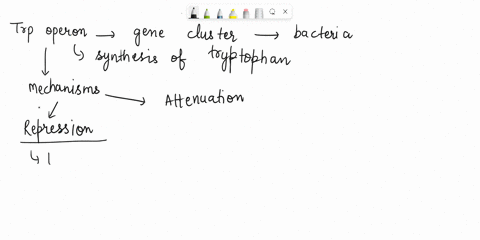 Trp operon → gene cluster → bacteria
↳ synthesis of tryptophan
mechanisms → Attenuation
Repression
↳ |